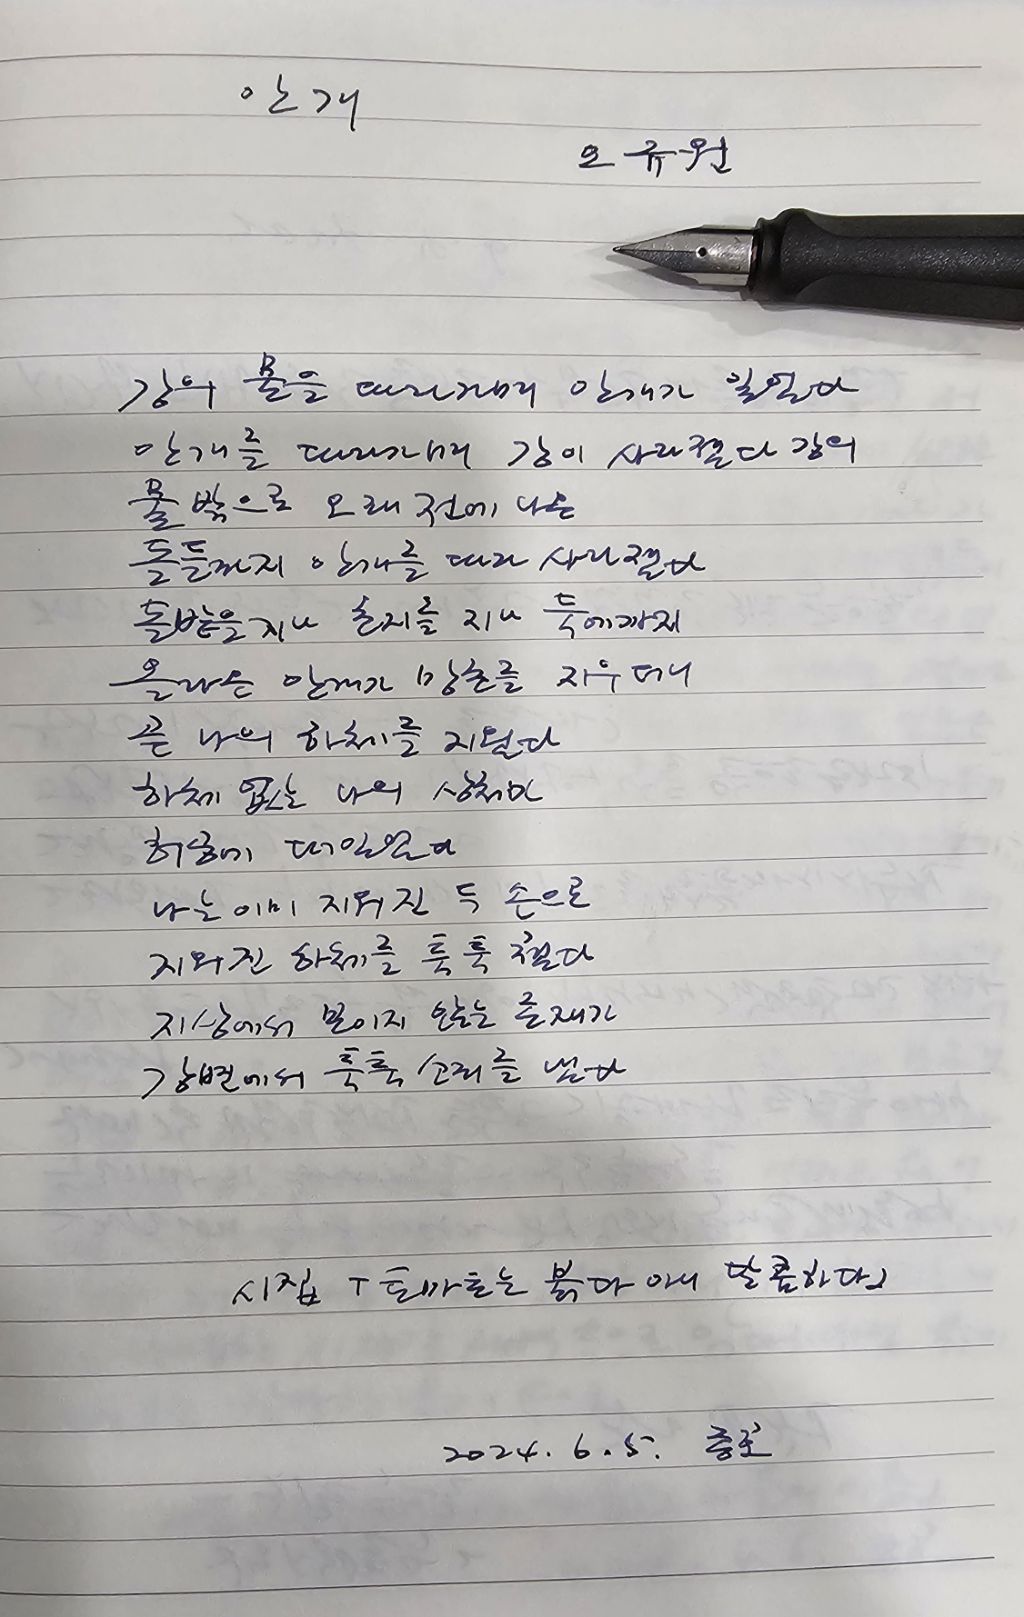 안개
오규원
강의 물을 따라가며 안개가 일었다
안개를 따라가며 강이 사라졌다 강의
물 밖으로 오래 전에 나온
돌들까지 안개를 따라 사라졌다
돌밭을 지나 초지를 지나 둑에까지
올라온 안개가 망초를 지우더니
곧 나의 하체를 지웠다
하체 없는 나의 상체만
허공에 떠있었다
나는 이미 지워진 두 손으로
지워진 하체를 툭툭 쳤다
지상에서 보이지 않는 존재가
강변에서 툭툭 소리를 냈다
시집 「토마토는 붉다 아니 달콤하다」
2024. 6. 5.